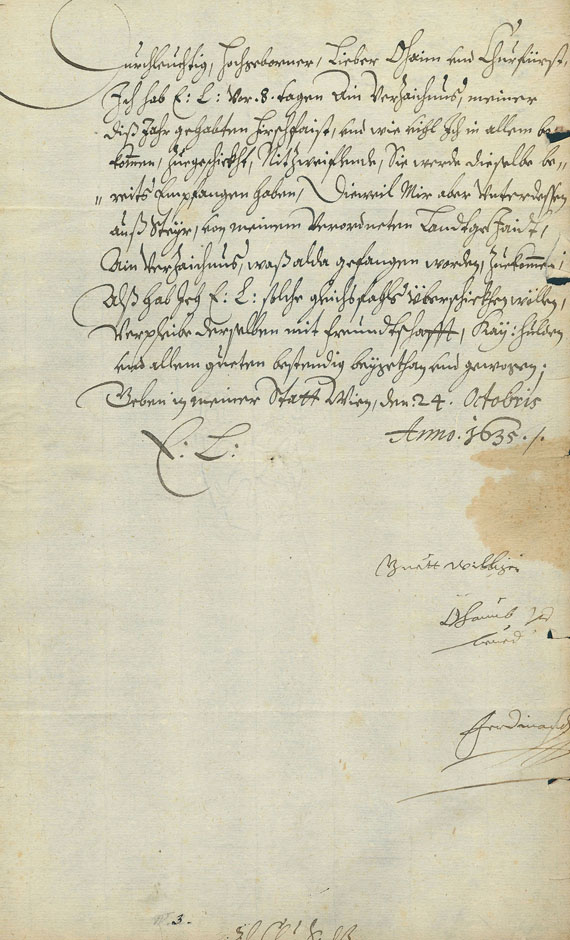 Durchleuchtig, Hochgeborner, Lieber Ohaim und Churfürst,
Ich hab E: L: vor .8. tagen Ain Verzaichnus, meiner
diß Jahr gehabten Hirschfaist, und wie vihl Ich in allem be
kommen, zuegeschickht, Nit zweiflende, Sie werde dieselbe be„
„ reits Empfangen haben, Dieweil Mir aber Unterdessen
auß Steyr, von meinem Verordneten Landtge Jaidt,
Ain Verzaichnus, waß alda gefangen worden, zuekommen;
Alß hab Ich E: L: solche gleichsfahls Überschickhen wöllen,
Verpleibe derselben mit freundtschafft, Kay: hulden
und allem gueten bestendig beygethan und gewogen;
Geben in meiner Statt Wien, den .24. Octobris
Anno. 1635. /.
E: L:
Guett williger
Ohaimb
Ferdinandt
3.